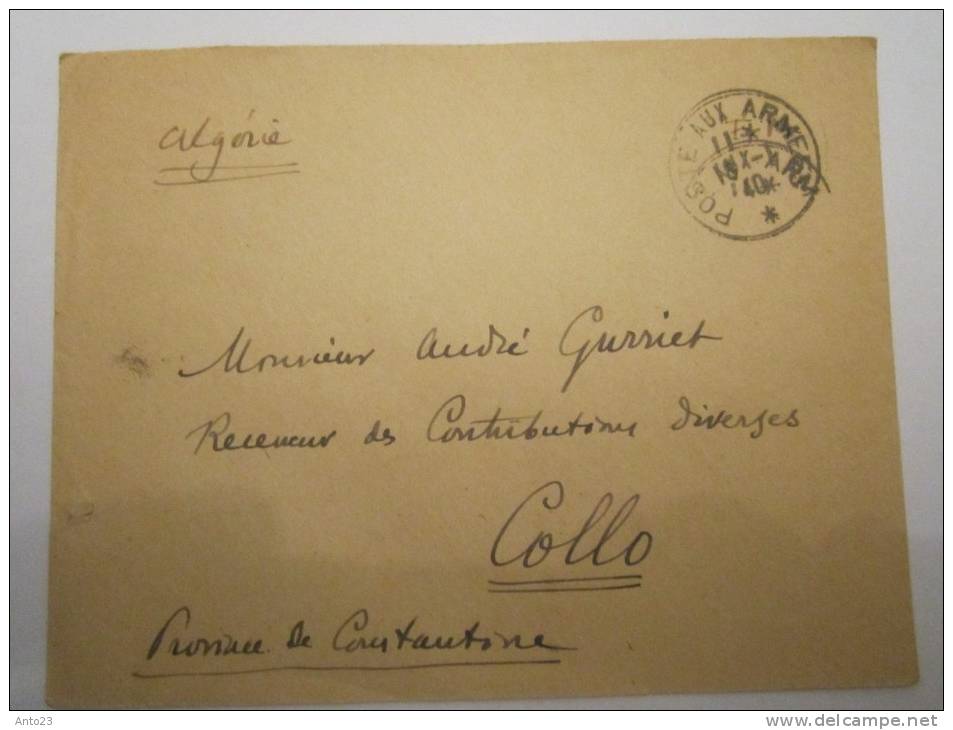 Algérie
POSTE AUX ARMÉES
Monsieur André Gurriet
Receveur des Contributions Diverses
Collo
Province de Constantine
Anto23
www.delcampe.net